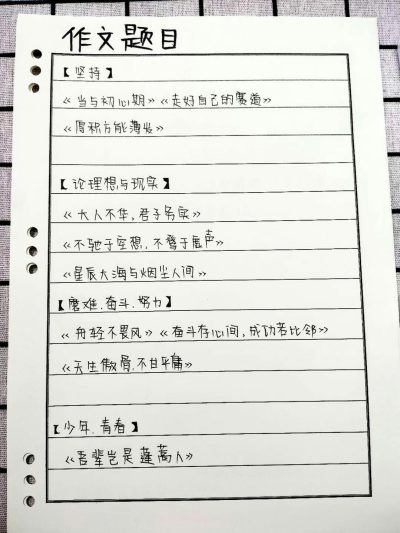 作文题目
【坚持】
《当与初心期》《走好自己的赛道》
《厚积方能薄发》
【论理想与现实】
《大人不华，君子务实》
《不驰于空想，不骛于虚声》
《星辰大海与烟尘人间》
【磨难.奋斗.努力】
《舟轻不畏风》《奋斗存心间，成功若比邻》
《天生傲骨.不甘平庸》
【少年.青春】
《吾辈岂是蓬蒿人》